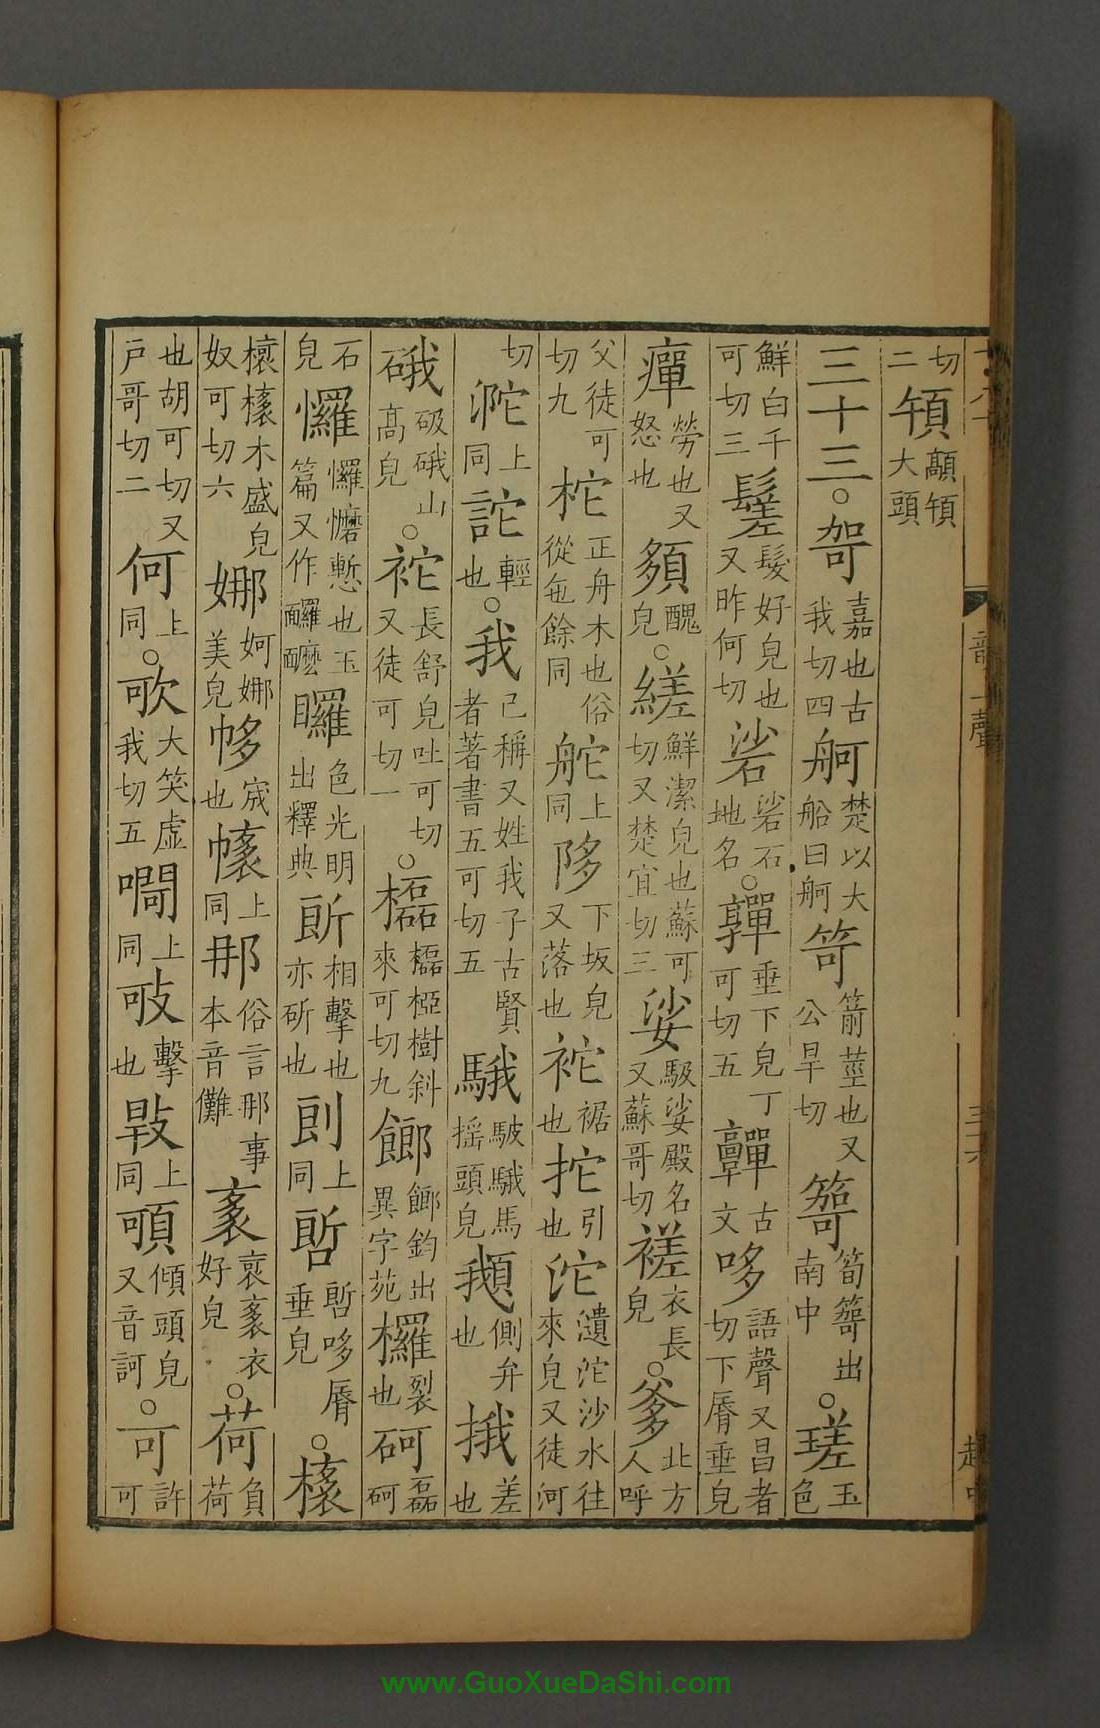 切二𩒃顬𩒃大頭
三十三。哿嘉也古我切四舸楚以大船曰舸笴箭莖也又公旱切䈊筍䈊出南中。瑳玉色
鮮白千可切三髊髮好皃也又昨何切䂳䂳石地名。嚲垂下皃丁可切五嚲古文哆語聲又昌者切下脣垂皃
癉勞也又怒也㛊醜皃。縒鮮潔皃也蘇可切又楚宜切三娑馺娑殿名又蘇哥切褨衣長皃。爹北方人呼
父徒可切九柁正舟木也俗從㐌餘同舵上同陊下坂皃又落也袉裾也拕引也沱瀢沱沙水往來皃又徒河
切沱上同詑輕也。我己稱又姓我子古賢者著書五可切五騀駊騀馬搖頭皃䫑側弁也捰差也
硪砐硪山高皃。袉長舒皃吐可切又徒可切一。𣠽𣠽椏樹斜來可切九𨞖𨞖鈞出異字苑欏裂也砢磊砢
石皃㦬㦬㦄慙也玉篇又作𩉙䩋𥌈色光明出釋典㪽相擊也亦斫也㓢上同哲哲哆脣垂皃。橠
橠橠木盛皃奴可切六娜妸娜美皃㡅㡅也𢅏上同那俗言那事本音儺袲裒袲衣好皃。荷負荷
也胡可切又戶哥切二何上同。㰤大笑虛我切五啁上同㱒擊也㪃上同𩑸傾頭皃又音訶。可許可
韻 上聲
三十六
www.GuoXueDaShi.com